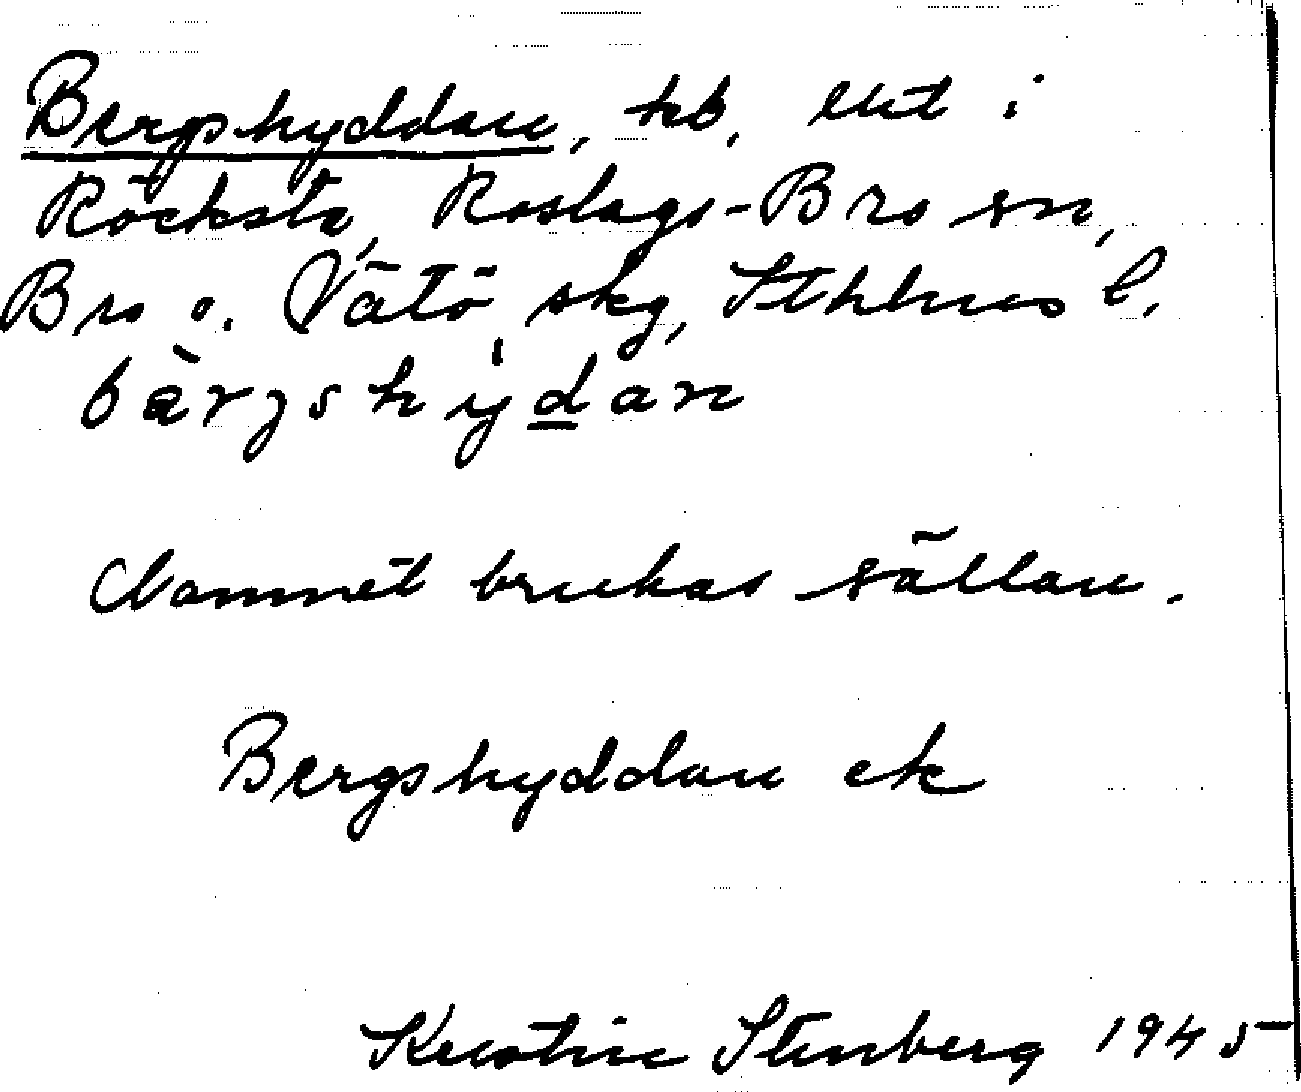 Bergshyddan, hb, utt i
Röcksta, Roslags-Bro sn,
Bro o. Vätö skg, Sthlms l.
bä̀rgshýd̲an
Namnet brukas sällan.
Bergshyddan ek
Kerstin Stenberg 1945